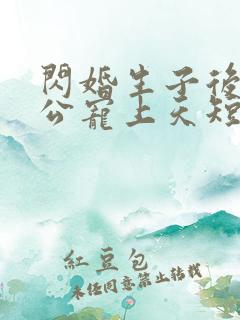 閃婚生子後
公寵上天短
紅豆包
未經同意禁止轉載